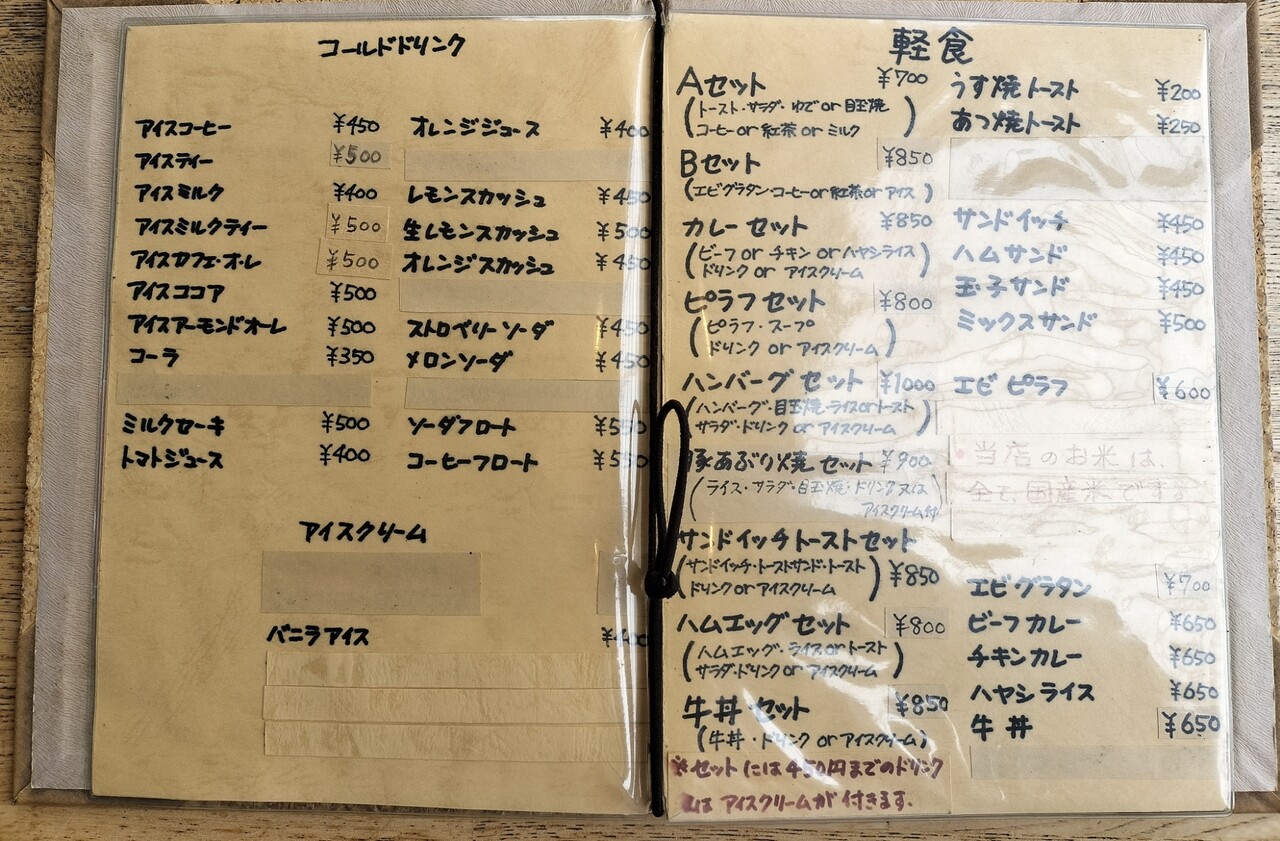 コールドドリンク
アイスコーヒー ¥450
アイスティー ¥500
アイスミルク ¥400
アイスミルクティー ¥500
アイスカフェ・オ・レ ¥500
アイスココア ¥500
アイスアーモンドオーレ ¥500
コーラ ¥350
ミルクセーキ ¥500
トマトジュース ¥400
オレンジジュース ¥400
レモンスカッシュ ¥450
生レモンスカッシュ ¥500
オレンジスカッシュ ¥450
ストロベリーソーダ ¥450
メロンソーダ ¥450
ソーダフロート ¥550
コーヒーフロート ¥550
アイスクリーム
バニラアイス ¥400
軽食
Aセット ¥700
(トースト・サラダ・ゆでor目玉焼
コーヒーor紅茶orミルク)
Bセット ¥850
(エビグラタン・コーヒーor紅茶orアイス)
カレーセット ¥850
(ビーフorチキンorハヤシライス
ドリンクorアイスクリーム)
ピラフセット ¥800
(ピラフ・スープ
ドリンクorアイスクリーム)
ハンバーグセット ¥1000
(ハンバーグ・目玉焼・ライスorトースト
サラダ・ドリンクorアイスクリーム)
豚あぶり焼セット ¥900
(ライス・サラダ・目玉焼・ドリンク又は
アイスクリーム付)
サンドイッチトーストセット
(サンドイッチ・トーストサンド・トースト
ドリンクorアイスクリーム) ¥850
ハムエッグセット ¥800
(ハムエッグ・ライスorトースト
サラダ・ドリンクorアイスクリーム)
牛丼セット ¥850
(牛丼・ドリンクorアイスクリーム)
※セットには450円までのドリンク
又はアイスクリームが付きます。
うす焼トースト ¥200
あつ焼トースト ¥250
サンドイッチ ¥450
ハムサンド ¥450
玉子サンド ¥450
ミックスサンド ¥500
エビピラフ ¥600
●当店のお米は、
全て国産米です。
エビグラタン ¥700
ビーフカレー ¥650
チキンカレー ¥650
ハヤシライス ¥650
牛丼 ¥650